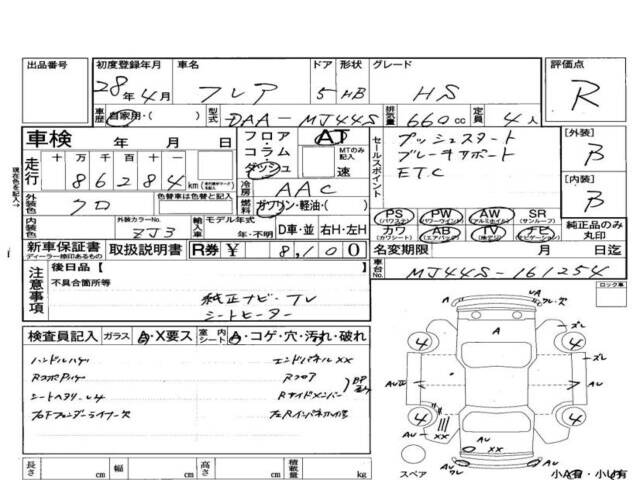 出品番号
初度登録年月 28年4月
車名 フレア
ドア 5
形状 HB
グレード HS
評価点 R
車歴 自家用・( )
型式 DAA-MJ44S
排気量 660cc
定員 4人
車検 年 月 日
フロア・コラム・ダッシュ
AT
MTのみ記入 速
セールスポイント
プッシュスタート
ブレーキサポート
ETC
[外装] B
[内装] B
現在色を記入→
走行 十万千百十一
86284km
冷房 AAC
外装色 クロ
色替車は色替と記入
燃料 ガソリン・軽油・( )
PS (パワステ)
PW (パワーウインド)
AW (アルミホイル)
SR (サンルーフ)
カワ (カワシート)
AB (エアバック)
TV
ナビ (ナビゲーション)
純正品のみ丸印
内装色
外装カラーNo. ZJ3
輸入車
モデル年式 年・不明
D車・並
右H・左H
新車保証書 ディーラー捺印あるもの
取扱説明書
R券 ¥ 8,100
名変期限 月 日迄
車台No. MJ44S-161254
注意事項
後日品【 】
不具合箇所等
純正ナビ・TV
シートヒーター
ロック車
検査員記入
ガラス A・X要ス
室内シート A・コゲ・穴・汚れ・破れ
ハンドルハゲ
エンドパネルXX
Rフロア
シートヘタリ・シミ
Rサイドメンバー
右Fフェンダーライナー欠
UA
A
ズレ
ズレ
4
4
4
4
AU
AU
AU
XX
AU
XX
AU
スペア
小A有・小U有
長さ cm
幅 cm
高さ cm
積載量 kg